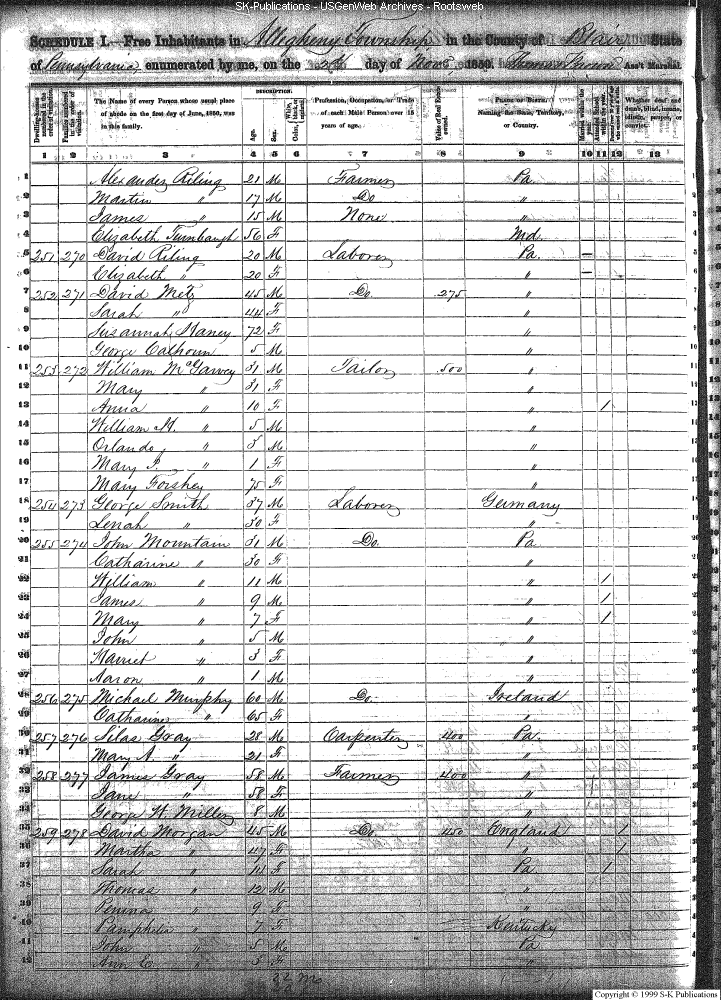 SK-Publications - USGenWeb Archives - Rootsweb
SCHEDULE I.—Free Inhabitants in Allegheny Township in the County of Blair State
of Pennsylvania, enumerated by me, on the day of Nov 1850. Ass't Marshal.
DESCRIPTION.
Dwelling-houses numbered in the order of visitation.
Families numbered in the order of visitation.
The Name of every Person whose usual place of abode on the first day of June, 1850, was in this family.
Age.
Sex.
White, black, or mulatto.
Color,
Profession, Occupation, or Trade of each Male Person over 15 years of age.
Value of Real Estate owned.
PLACE OF BIRTH, Naming the State, Territory, or Country.
Married within the year.
Attended School within the year.
Whether deaf and dumb, blind, insane, idiotic, pauper, or convict.
1 2 3 4 5 6 7 8 9 10 11 12 13
1 Alexander Riling 21 M Farmer Pa
2 Martin " 17 M Do "
3 James " 15 M None "
4 Elizabeth Turnbaugh 56 F Md
5 251 270 David Riling 20 M Laborer Pa –
6 Elizabeth " 20 F " –
7 252 271 David Metz 45 M Do. 275 "
8 Sarah " 44 F "
9 Susannah 72 F "
10 George Calhoun 5 M "
11 253 272 William McGarvey 31 M Tailor 500 "
12 Mary " 31 F "
13 Anna " 10 F " /
14 William " 5 M "
15 Orlando " 3 M "
16 Mary " 1 F "
17 Mary Forshey 75 F "
18 254 273 George Smith 37 M Laborer Germany
19 Lenah " 30 F "
20 255 274 John Mountain 31 M Do. Pa
21 Catharine " 30 F "
22 William " 11 M " /
23 James " 9 M " /
24 Mary " 7 F " /
25 John " 5 M "
26 Harriet " 3 F "
27 Aaron " 1 M "
28 256 275 Michael Murphy 60 M Do. Ireland
29 Catharine " 65 F "
30 257 276 Silas Gray 28 M Carpenter 400 Pa
31 Mary A. " 21 F "
32 258 277 James Gray 58 M Farmer 400 "
33 Jane " 58 F "
34 George W. Miller 8 M "
35 259 278 David Morgan 45 M Do 450 England /
36 Martha " 47 F " /
37 Sarah " 14 F Pa /
38 Thomas " 12 M "
39 Penina " 9 F "
40 Pamphelia " 7 F Kentucky
41 John " 5 M Pa
42 Ann E. " 3 F "
22 M
Copyright © 1999 S-K Publications